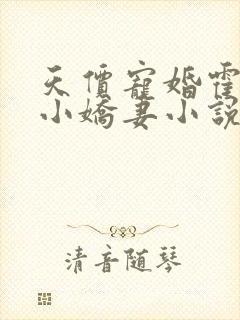 天價寵婚霍
小嬌妻小說
清音随琴